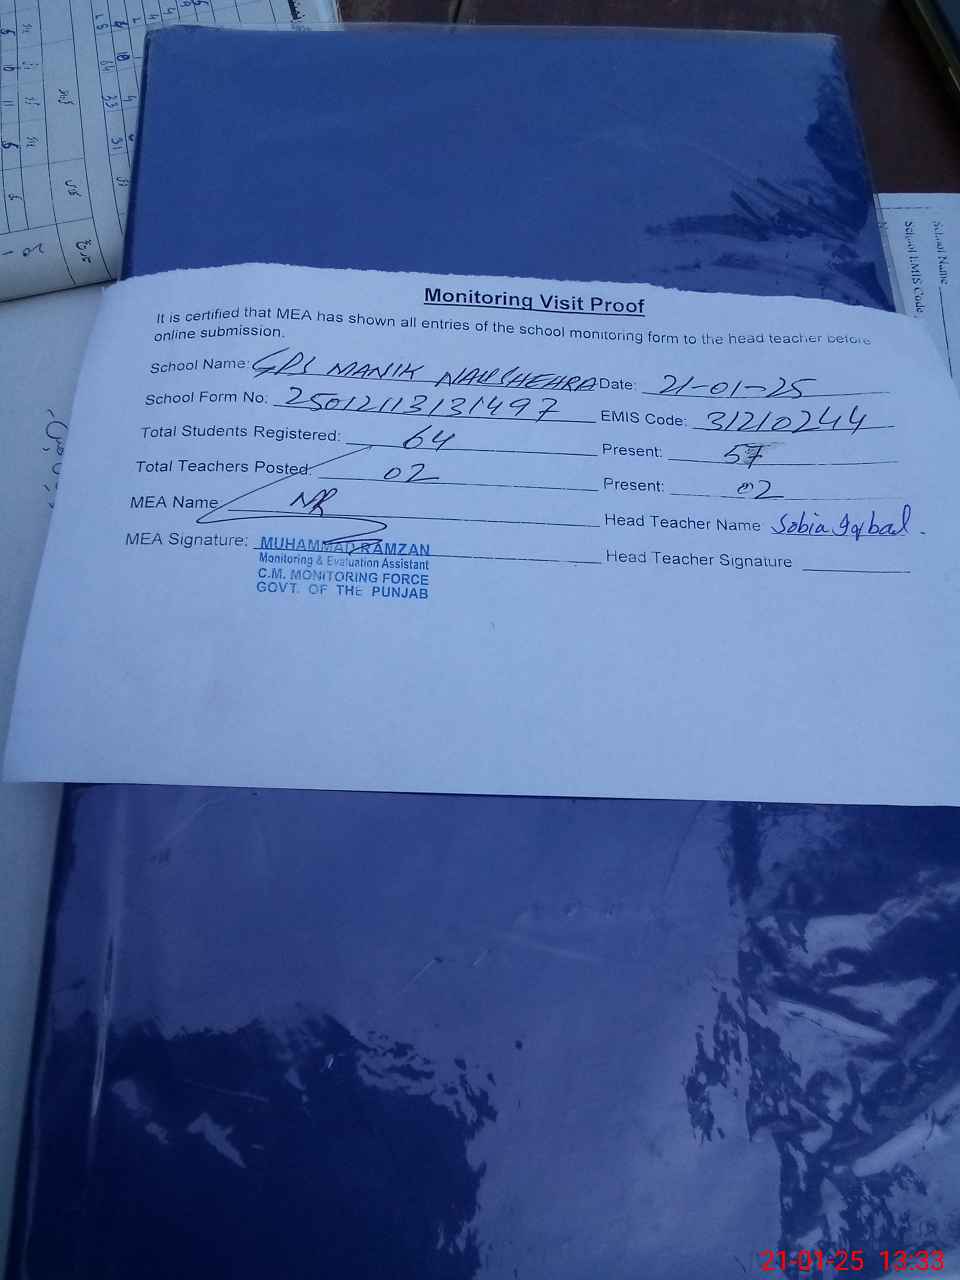 Monitoring Visit Proof
It is certified that MEA has shown all entries of the school monitoring form to the head teacher before
online submission.
School Name: GPS MANIK NAUSHEHRA Date: 21-01-25
School Form No: 25012113131497 EMIS Code: 31210244
Total Students Registered: 64 Present: 57
Total Teachers Posted: 02 Present: 02
MEA Name: MR Head Teacher Name Sobia Iqbal.
MEA Signature: Head Teacher Signature
MUHAMMAD RAMZAN
Monitoring & Evaluation Assistant
C.M. MONITORING FORCE
GOVT. OF THE PUNJAB
School Name
School EMIS Code
21-01-25 13:33